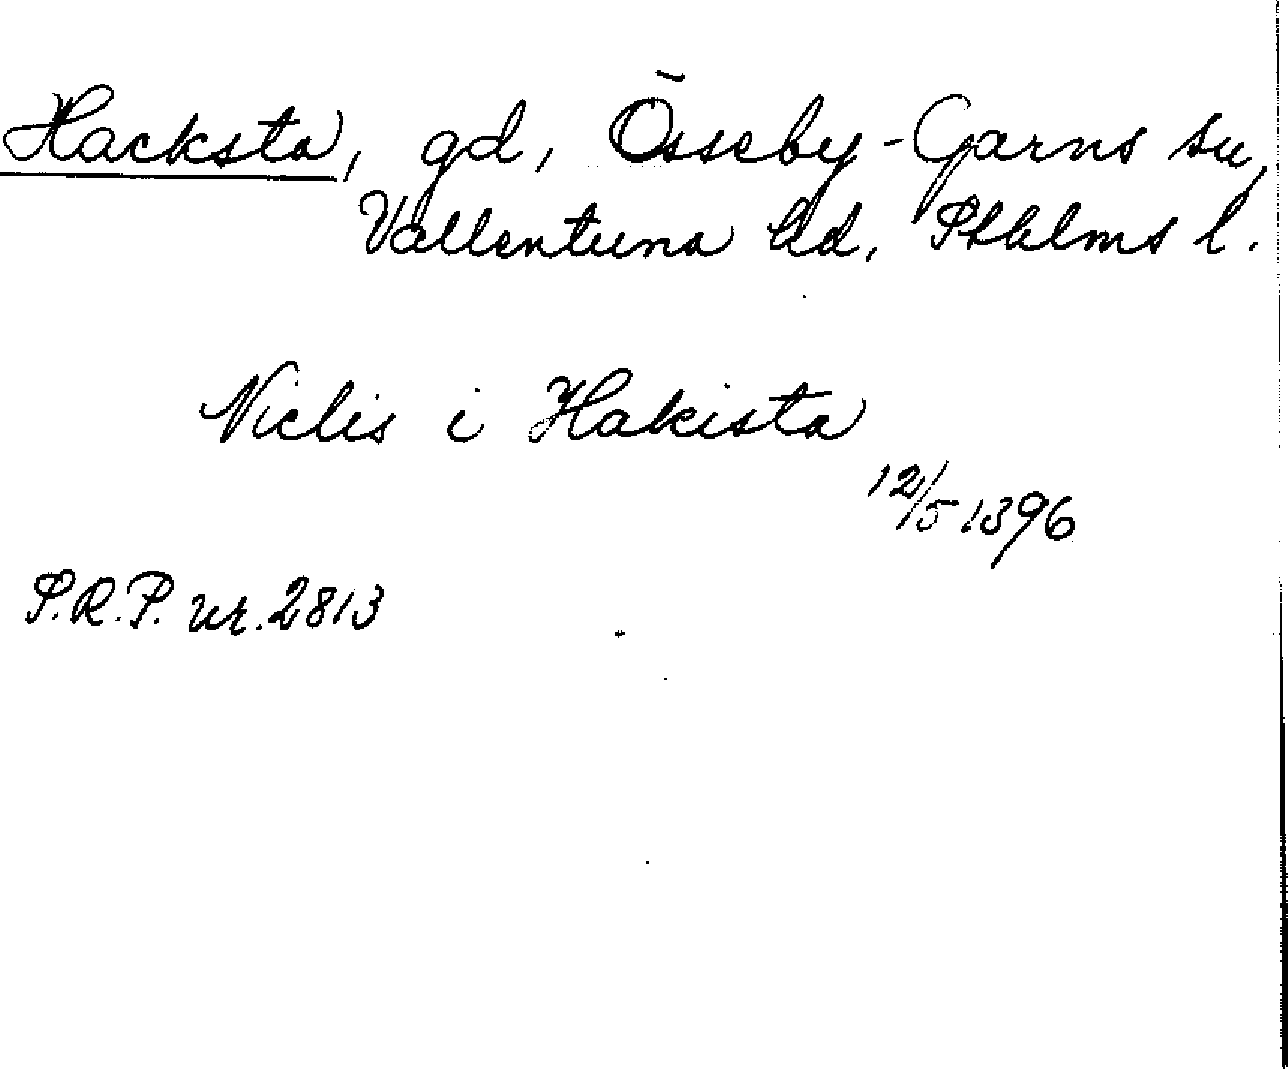 Hacksta, gd, Össeby-Garns sn,
Vallentuna hd, Sthlms l.
Niclis i Hakista
12/5 1396
S.R.P. nr. 2813